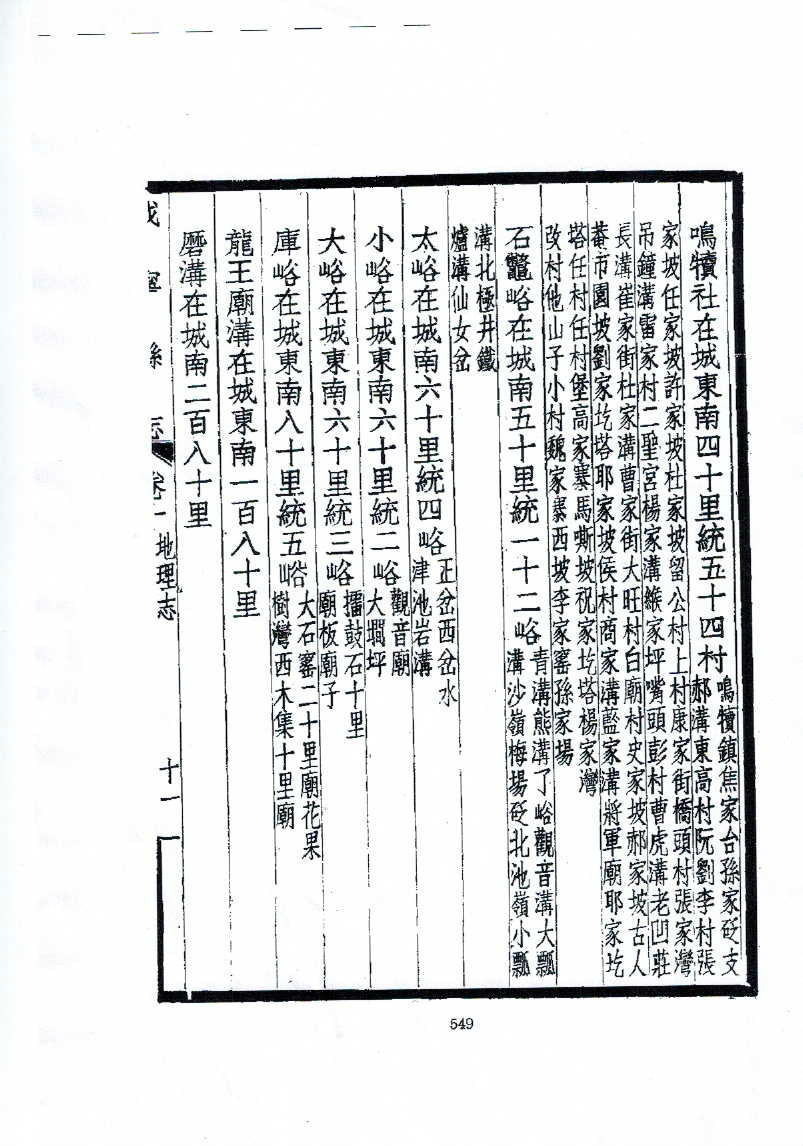 鳴犢社在城東南四十里統五十四村
鳴犢鎮焦家台孫家砭支
郝溝東高村阮劉李村張
家坡任家坡許家坡杜家坡留公村上村康家街橋頭村張家灣
吊鐘溝雷家村二聖宮楊家溝緱家坪嘴頭彭村曹虎溝老凹莊
長溝崔家街杜家溝曹家街大旺村白廟村史家坡郝家坡古人
菴市園坡劉家圪塔耶家坡侯村商家溝藍家溝將軍廟耶家圪
塔任村任村堡高家寨馬嘶坡祝家圪塔楊家灣
改村他山子小村魏家寨西坡李家窰孫家場
石鼈峪在城南五十里統一十二峪
青溝熊溝了峪觀音溝大瓢
溝沙嶺梅場砭北池嶺小瓢
溝北極井鐵
爐溝仙女岔
太峪在城南六十里統四峪
正岔西岔水
津池岩溝
小峪在城東南六十里統二峪
觀音廟
大墹坪
大峪在城東南六十里統三峪
擂鼓石十里
廟板廟子
庫峪在城東南八十里統五峪
大石窰二十里廟花果
樹灣西木集十里廟
龍王廟溝在城東南一百八十里
磨溝在城南二百八十里
咸寧縣志 卷一 地理志 十一
549